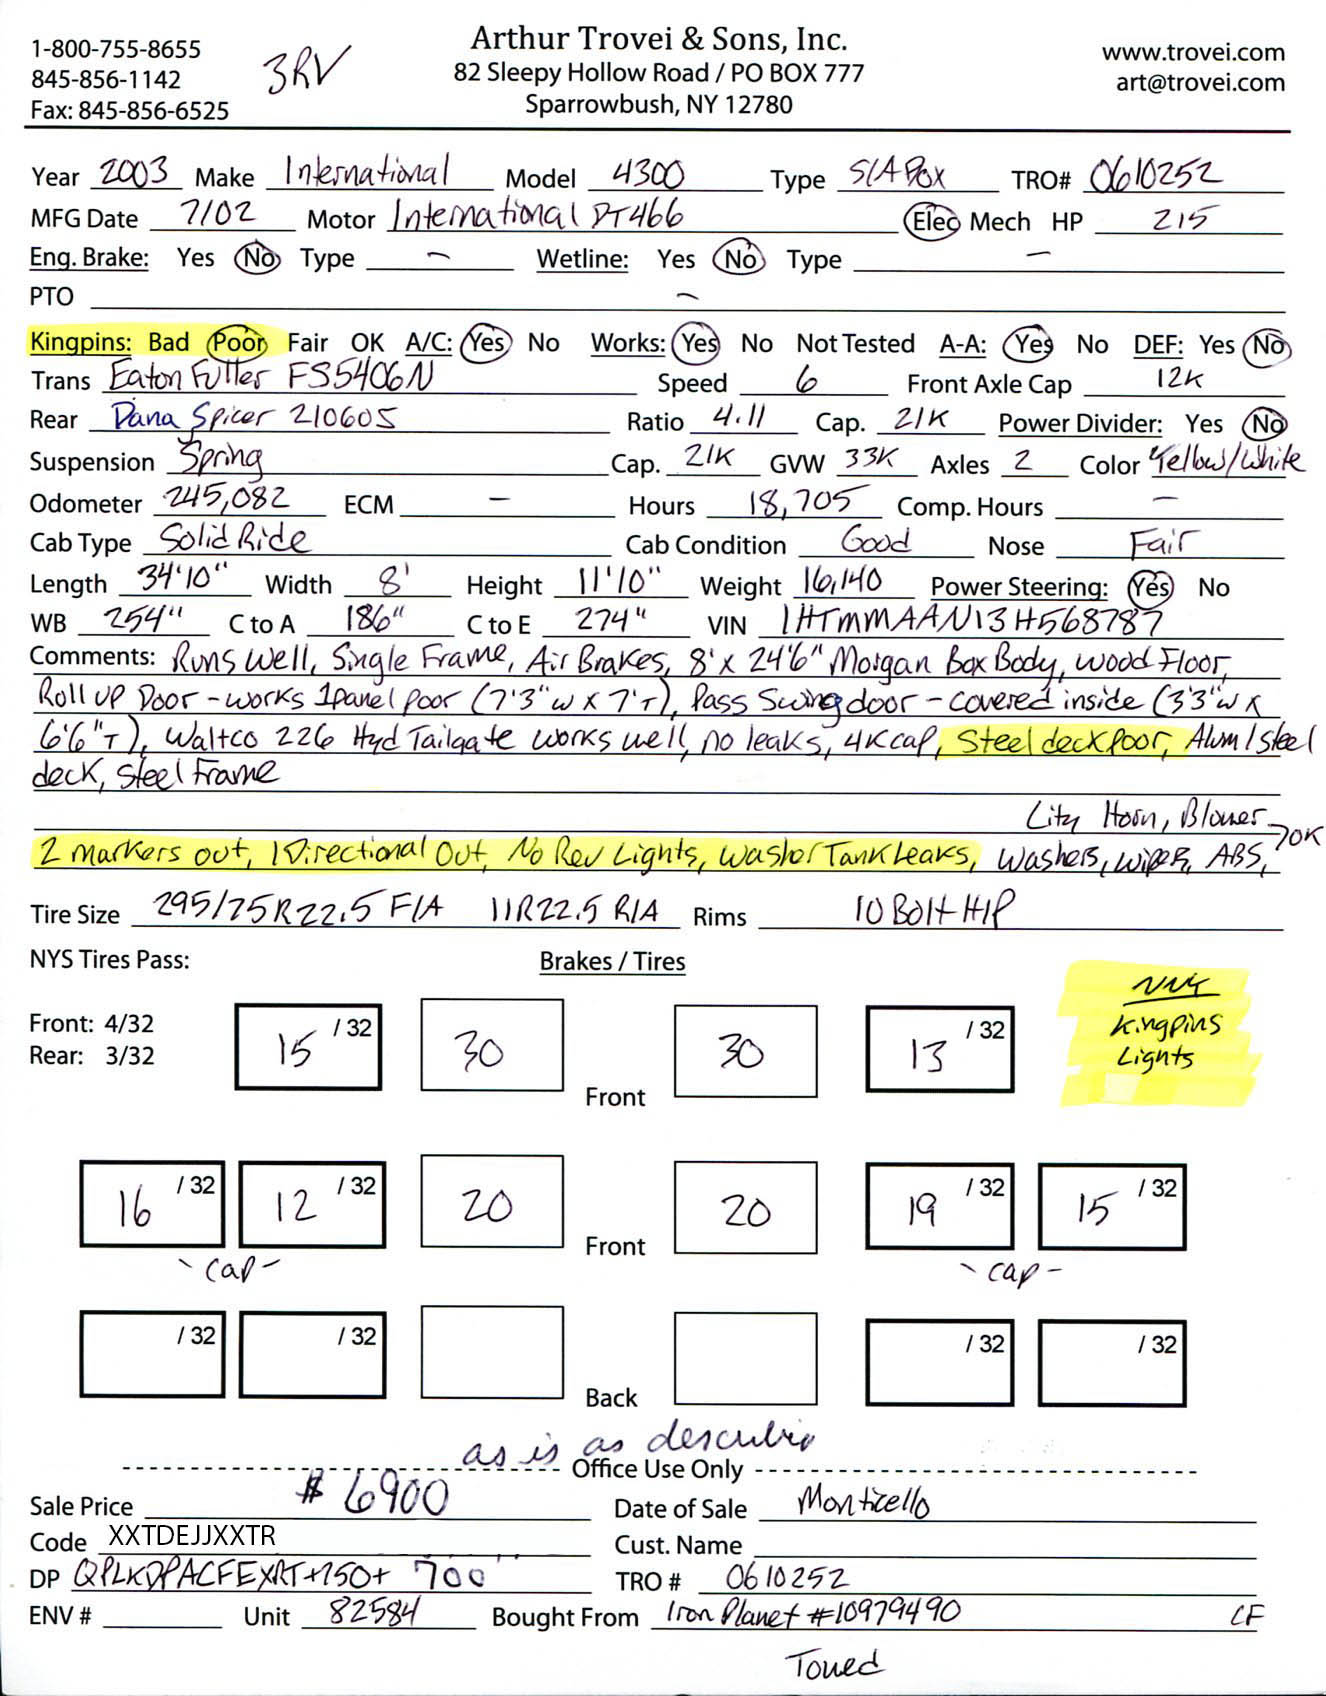 1-800-755-8655
845-856-1142
Fax: 845-856-6525
3RV
Arthur Trovei & Sons, Inc.
82 Sleepy Hollow Road / PO BOX 777
Sparrowbush, NY 12780
www.trovei.com
art@trovei.com
Year 2003 Make International Model 4300 Type S/A Box TRO# 0610252
MFG Date 7/02 Motor International DT466 Elec Mech HP 215
Eng. Brake: Yes No Type - Wetline: Yes No Type -
PTO -
Kingpins: Bad Poor Fair OK A/C: Yes No Works: Yes No Not Tested A-A: Yes No DEF: Yes No
Trans Eaton Fuller FS5406N Speed 6 Front Axle Cap 12K
Rear Dana Spicer 21060S Ratio 4.11 Cap. 21K Power Divider: Yes No
Suspension Spring Cap. 21K GVW 33K Axles 2 Color Yellow/White
Odometer 245,082 ECM - Hours 18,705 Comp. Hours -
Cab Type Solid Ride Cab Condition Good Nose Fair
Length 34'10" Width 8' Height 11'10" Weight 16,140 Power Steering: Yes No
WB 254" C to A 186" C to E 274" VIN 1HTMMAAN13H568787
Comments: Runs Well, Single Frame, Air Brakes, 8' x 24'6" Morgan Box Body, Wood Floor,
Roll up Door - works 1 panel poor (7'3"w x 7'T), Pass Swing door - covered inside (3'3"w x
6'6"T), Waltco 226 Hyd Tailgate works well, no leaks, 4K cap, Steel deck poor, Alum/steel
deck, Steel Frame
City Horn, Blower
2 markers out, 1 Directional Out, No Rev Lights, Washer Tank Leaks, Washers, wipers, ABS, OK
Tire Size 295/75R22.5 F/A 11R22.5 R/A Rims 10 Bolt H/P
NYS Tires Pass: Brakes / Tires
Front: 4/32
Rear: 3/32
15 /32 30 Front 30 13 /32
Kingpins
Lights
16 /32 12 /32 20 Front 20 19 /32 15 /32
- cap - - cap -
/32 /32 Back /32 /32
as is as described
Office Use Only
Sale Price $6900 Date of Sale Monticello
Code XXTDEJJXXTR Cust. Name
DP QPLKDPACFEXRT+150+ 700 TRO # 0610252
ENV # Unit 82584 Bought From Iron Planet #10979490 CF
Towed